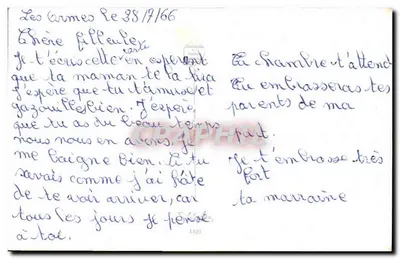 Les Ormes le 28/7/66
Chère filleule
Je t'écris cette carte en esperant
que ta maman te la lira
J'espère que tu t'amuse et
gazouilles bien. J'espère
que tu as du beau temps
nous nous en avons. je
me baigne bien. Si tu
savais comme j'ai hâte
de te voir arriver, car
tous les jours je pense
à toi.
Ta chambre t'attend
Tu embrasseras tes
parents de ma
part.
Je t'embrasse très
fort
ta marraine